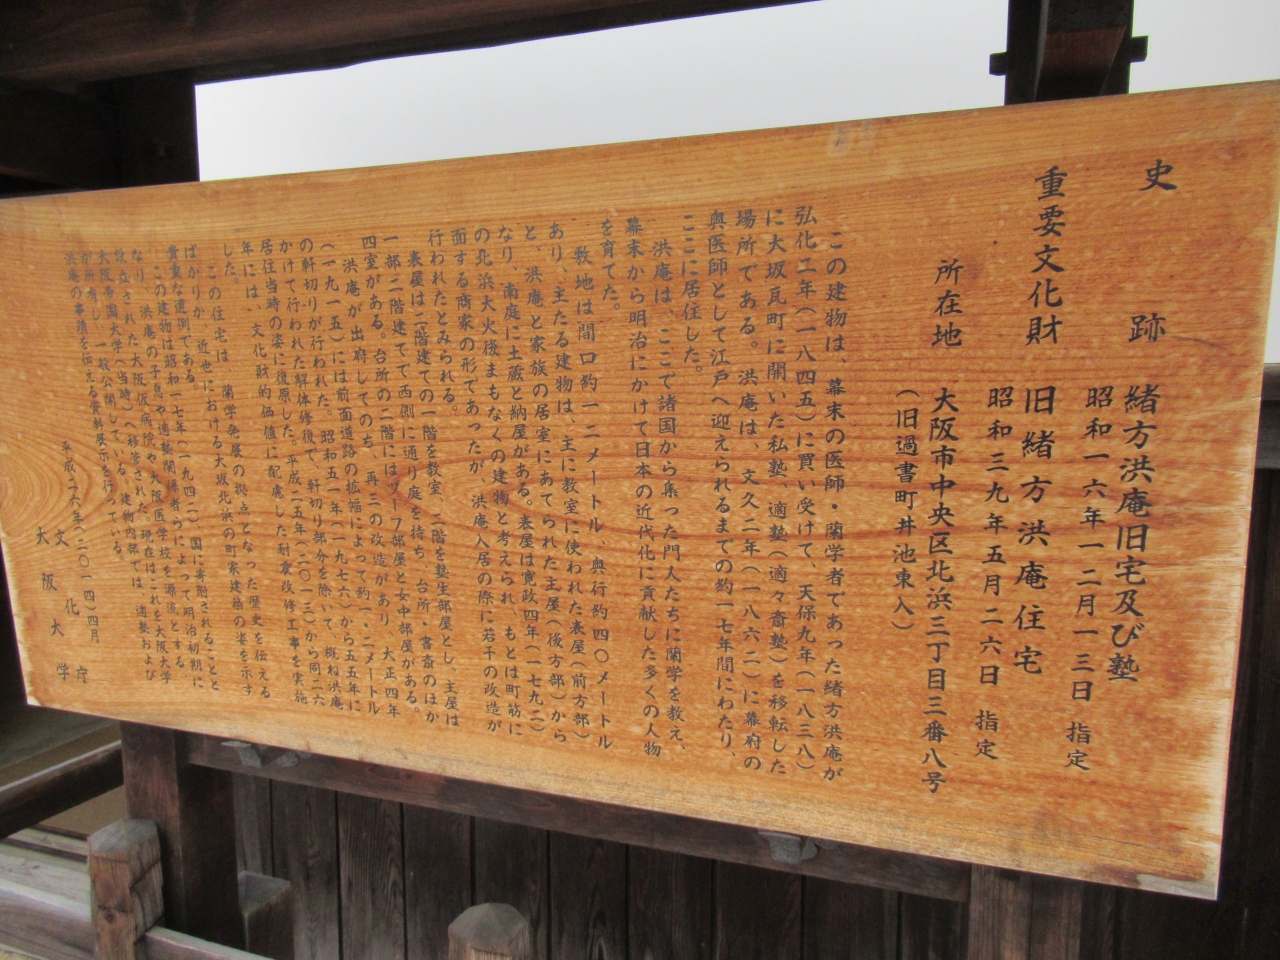 史跡　緒方洪庵旧宅及び塾
昭和一六年一二月一三日　指定
重要文化財　旧緒方洪庵住宅
昭和三九年五月二六日　指定
所在地　大阪市中央区北浜三丁目三番八号
（旧過書町丼池東入）
この建物は、幕末の医師・蘭学者であった緒方洪庵が
弘化二年（一八四五）に買い受けて、天保九年（一八三八）
に大坂瓦町に開いた私塾、適塾（適々斎塾）を移転した
場所である。洪庵は、文久二年（一八六二）に幕府の
奥医師として江戸へ迎えられるまでの約一七年間にわたり、
ここに居住した。
洪庵は、ここで諸国から集った門人たちに蘭学を教え、
幕末から明治にかけて日本の近代化に貢献した多くの人物
を育てた。
敷地は間口約一二メートル、奥行約四〇メートル
あり、主たる建物は、主に教室に使われた表屋（前方部）
と、洪庵と家族の居室にあてられた主屋（後方部）から
なり、南庭に土蔵と納屋がある。表屋は寛政四年（一七九二）
の北浜大火後まもなくの建物と考えられ、もとは町筋に
面する商家の形であったが、洪庵入居の際に若干の改造が
行われたとみられる。
表屋は二階建ての一階を教室、二階を塾生部屋とし、主屋は
一部二階建てで西側に通り庭を持ち、台所、書斎のほか
四室がある。台所の二階にはヅーフ部屋と女中部屋がある。
洪庵が出府してのち、再三の改造があり、大正四年
（一九一五）には前面道路の拡幅によって約一・二メートル
の軒切りが行われた。昭和五一年（一九七六）から五五年に
かけて行われた解体修復で、軒切り部分を除いて、概ね洪庵
居住当時の姿に復原した。平成二五年（二〇一三）から同二六
年には、文化財的価値に配慮した耐震改修工事を実施
した。
この住宅は、蘭学発展の拠点となった歴史を伝える
ばかりか、近世における大坂北浜の町家建築の姿を示す
貴重な遺例である。
この建物は昭和一七年（一九四二）、国に寄附されることと
なり、洪庵の子息や適塾関係者らによって明治初期に
設立された大阪病院や大阪医学校を源流とする、
大阪帝国大学（当時）へ移管された。現在はこれを大阪大学
が所有し、一般公開している。建物内部では、適塾および
洪庵の事績を伝える資料展示を行っている。
平成二六年（二〇一四）四月
文化庁
大阪大学